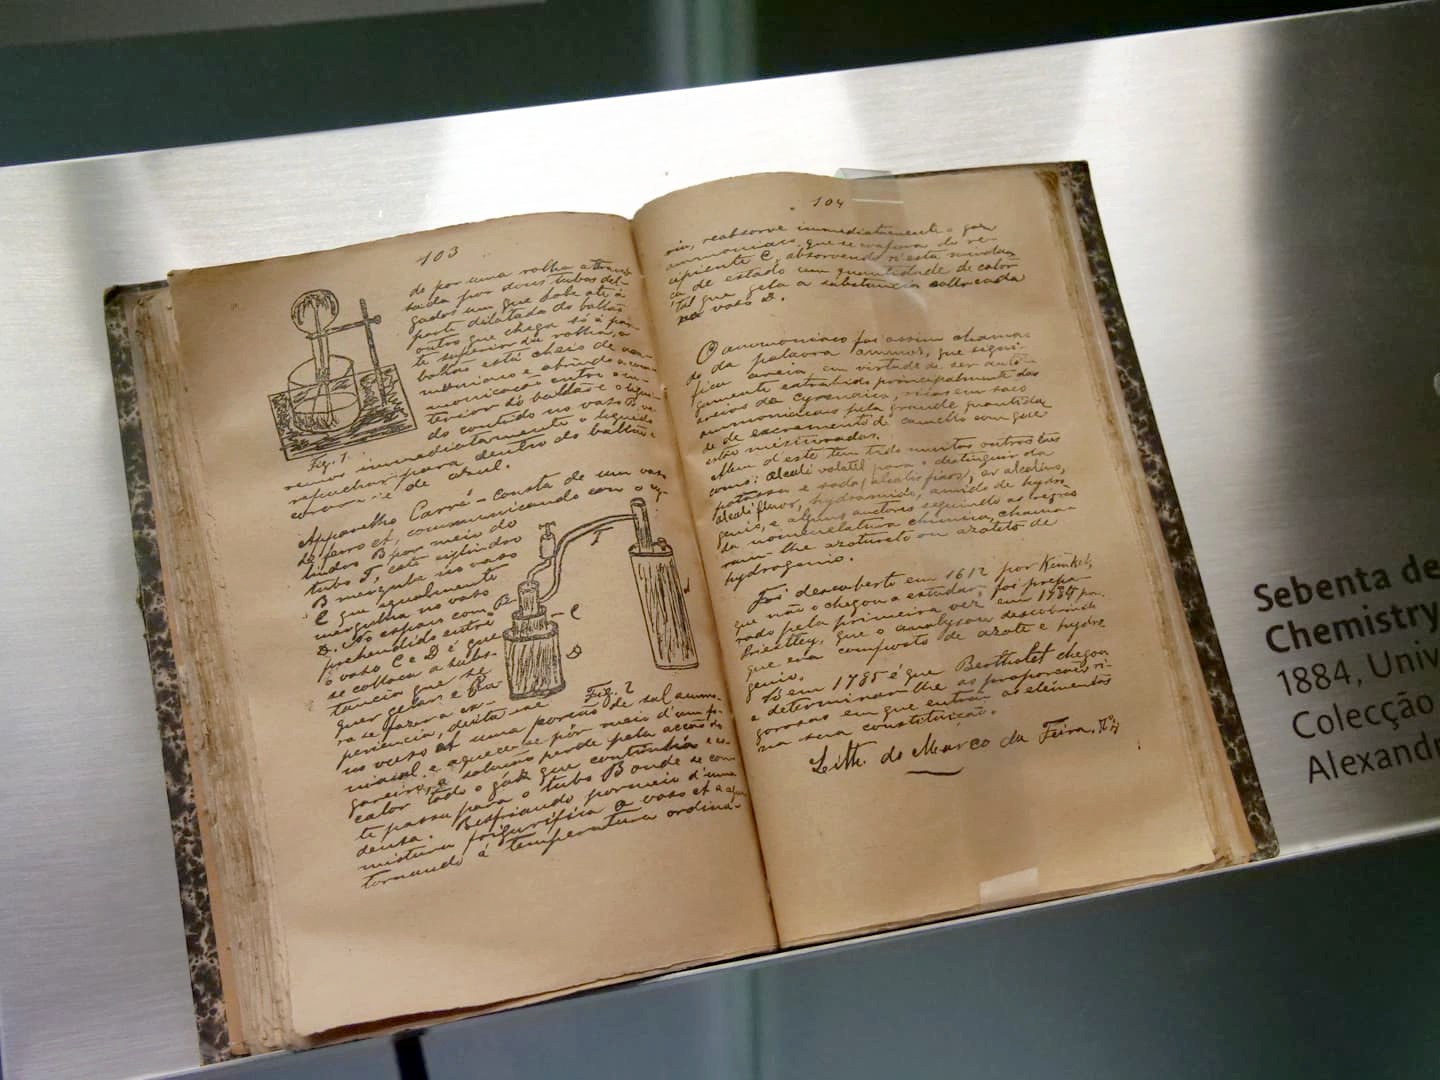 103
de por uma rolha atraves-
sada por dous tubos del-
gados um que sobe até á
parte dilatada do balão
outro que chega só á par-
te superior da rolha, o
balão está cheio de am-
moniaco e abrindo a com-
municação entre o in-
terior do balão e o liqui-
do contido no vaso B ve-
remos immediatamente o liquido
repuchar para dentro do balão e
corar-se de azul.
Fig. 1
Apparelho Carré - Consta de um vaso
de ferro A, communicando com o cy-
lindro B por meio do
tubo T, este cylindro
B mergulha no vaso
C que egualmente
mergulha no vaso
D. No espaço com-
prehendido entre
o vaso C e D é que
se colloca a subs-
tancia que se
quer gelar. e Pa-
ra se fazer a ex-
periencia, deita-se
T
C
D
Fig. 2
no vaso A uma porção de sal ammo-
niacal, e aquece-se por meio d'um fo-
gareiro, a solução perde pela acção do
calor todo o gáz que continha e es-
te passa para o tubo B onde se con-
densa. Resfriando por meio d'uma
mistura frigorifica o vaso A e a agua
tornando á temperatura ordina-
104
ria, reabsorve immediatamente o gaz
ammoniaco, que se evapora do re-
cipiente C, absorvendo n'esta mudan-
ça de estado um quantidade de calor
tal que gela a substancia collocada
no vaso D.
O ammoniaco foi assim chama-
do da palavra ammos, que signi-
fica areia, em virtude de ser anti-
gamente extrahido principalmente das
areias da Cyrenaica, ricas em saes
ammoniacaes pela grande quantida-
de de excremento de camello com que
estão misturadas.
Alem d'este tem tido muitos outros taes
como: alcali volatil para o distinguir da
potassa e soda (alcalis fixos), ar alcalino,
alcali fluor, hydramido, amido de hydro-
genio, e alguns auctores seguindo as regras
da nomenclatura chimica, chama-
ram-lhe azotureto ou azoteto de
hydrogenio.
Foi descoberto em 1612 por Kunkel,
que não o chegou a estudar, foi prepa-
rado pela primeira vez em 1784 por
Priestley, que o analysou descobrindo
que era composto de azote e hydro
genio.
Só em 1785 é que Berthollet chegou
a determinar-lhe as proporções ri-
gorosas em que entram os elementos
na sua constituição.
Lith. do Marco da Feira, Nº
Sebenta de
Chemistry
1884, Univ
Colecção
Alexand